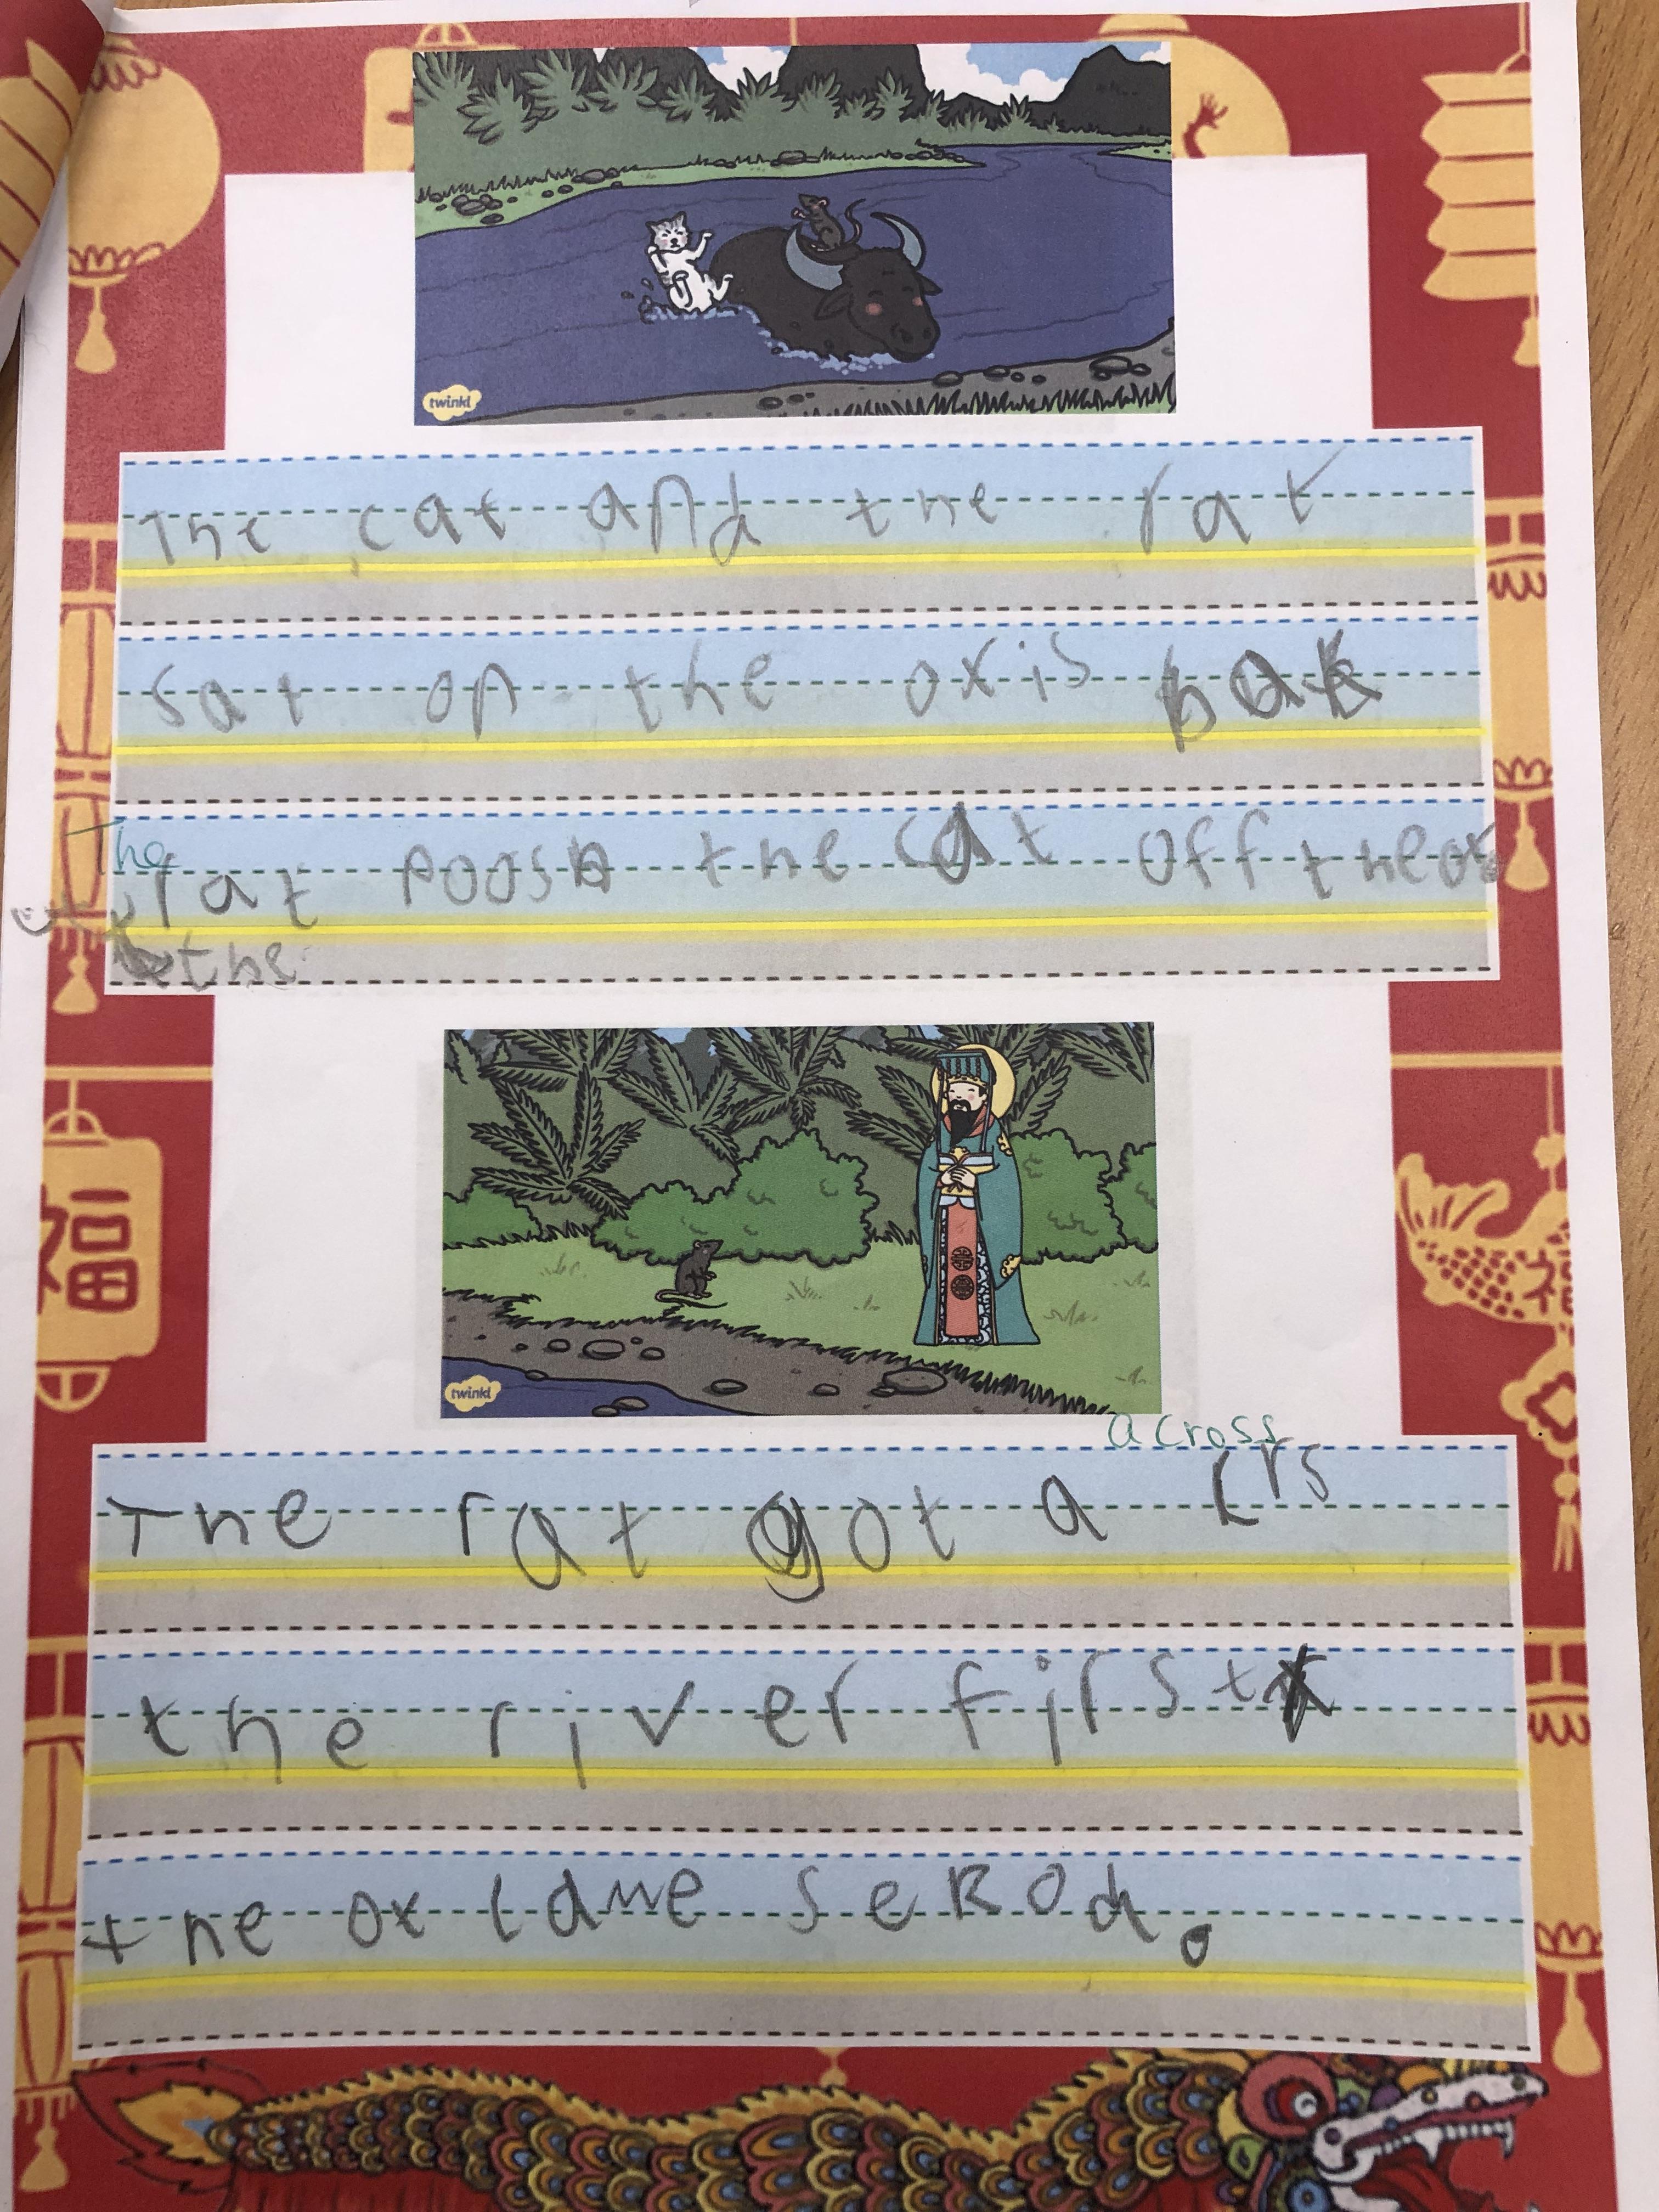 twinkl
The cat and the rat
sat on the oxis bak
The
rat poosh the cat off the ox
the
福
twinkl
福
across
The rat got a crs
the river first
the ox came sekod.